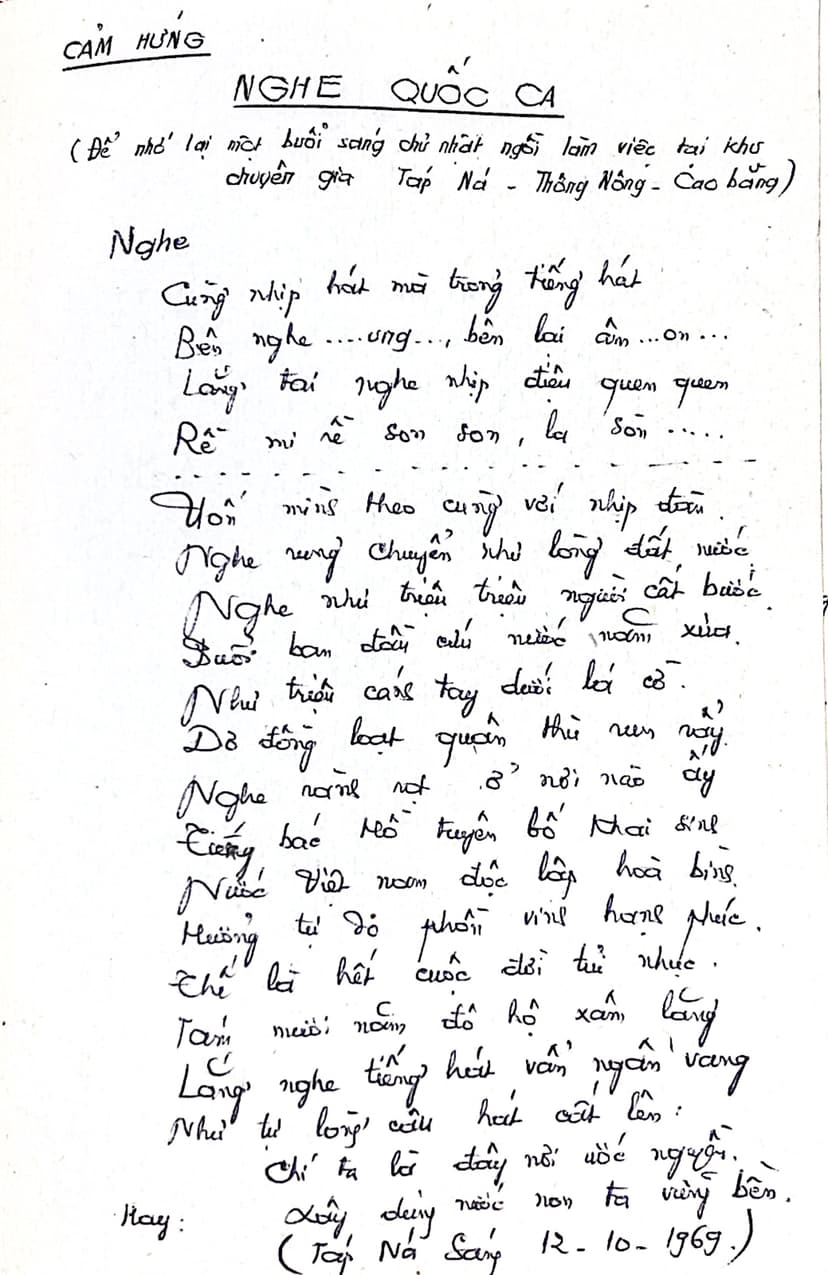 CẢM HỨNG
NGHE QUỐC CA
(Để nhớ lại một buổi sáng chủ nhật ngồi làm việc tại khu
chuyên gia Táp Ná - Thông Nông - Cao bằng)
Nghe
Cùng nhịp hát mà trong tiếng hát
Bên nghe ....ưng..., bên lại âm...on...
Lắng tai nghe nhịp điệu quen quen
Rề mi rề son son, la son .....
Uốn mình theo cùng với nhịp đàn.
Nghe rung chuyển như lòng đất nước
Nghe như triệu triệu người cất bước.
Buổi ban đầu cứu nước năm xưa.
Như triệu cánh tay dưới lá cờ.
Dơ đồng loạt quân thù run rẩy.
Nghe rành rọt ở nơi nào ấy
Tiếng bác Hồ tuyên bố khai sinh
Nước Việt nam độc lập hoà bình.
Hưởng tự do phồn vinh hạnh phúc.
Thế là hết cuộc đời tủi nhục.
Tám mươi năm đô hộ xâm lăng
Lắng nghe tiếng hát vẫn ngân vang
Như tự lòng câu hát cất lên:
Chí ta là đây nơi ước nguyện.
Hay: Xây dựng nước non ta vững bền.
(Táp Ná Sáng 12-10-1969.)